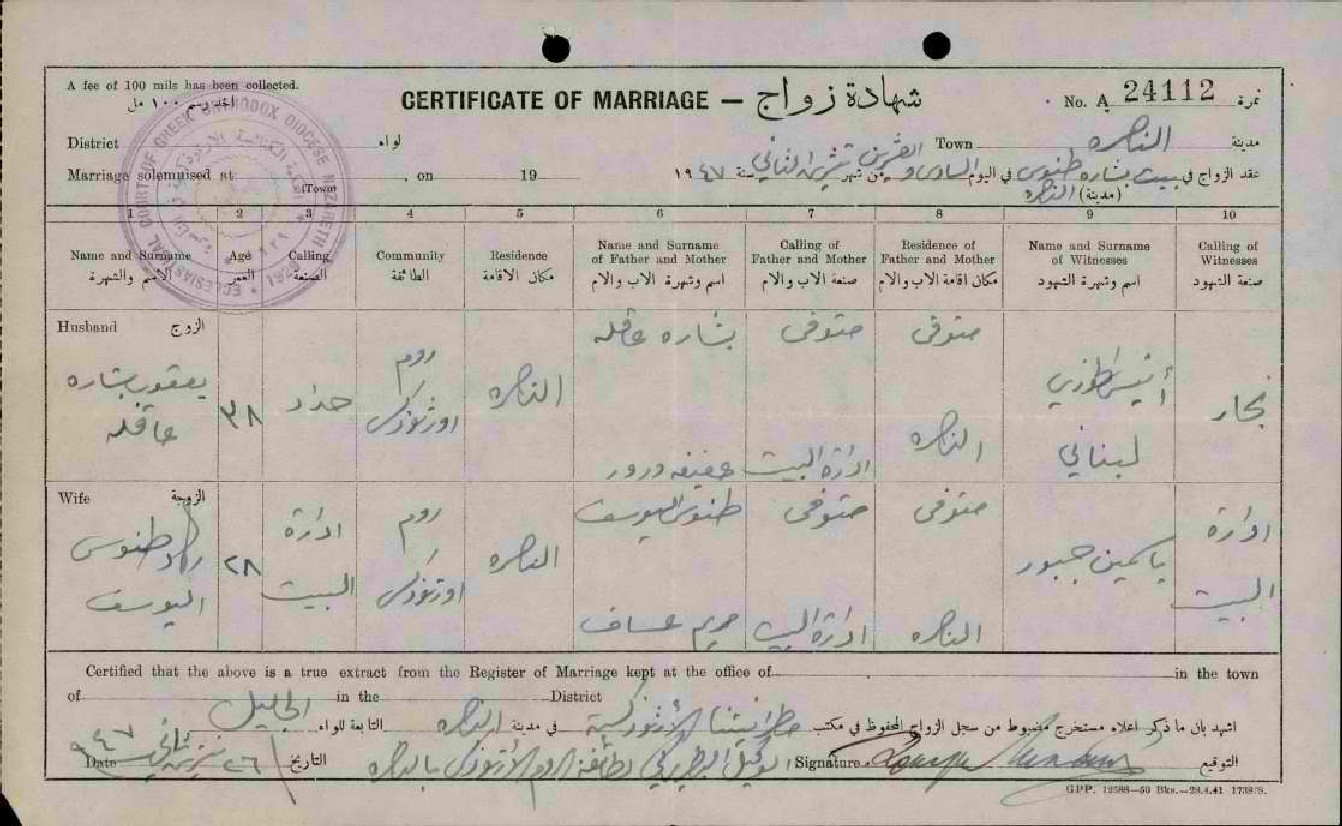 A fee of 100 mils has been collected.
أخذ رسم ١٠٠ مل
CERTIFICATE OF MARRIAGE — شهادة زواج
No. A 24112 نمرة
District لواء Town الناصره مدينة
Marriage solemnised at (Town) , on 19
عقد الزواج في بيت بشاره طنوس في اليوم السادس والعشرين من شهر تشرين الثاني سنة ١٩٤٧
(مدينة) الناصره
ECLESIASTICAL COURTS OF GREEK ORTHODOX DIOCESE NAZARETH
1 2 3 4 5 6 7 8 9 10
Name and Surname Age Calling Community Residence Name and Surname of Father and Mother Calling of Father and Mother Residence of Father and Mother Name and Surname of Witnesses Calling of Witnesses
الاسم والشهرة العمر الصنعة الطائفة مكان الاقامة اسم وشهرة الاب والام صنعة الاب والام مكان اقامة الاب والام اسم وشهرة الشهود صنعة الشهود
Husband الزوج
يعقوب بشاره عاقله
٣٨
حداد
روم اورثوذكس
الناصره
بشاره عاقله
متوفى
متوفى
أنيس
لبناني
نجار
عفيفه ورور
ادارة البيت
الناصره
Wife الزوجة
طنوس اليوسف
٢٨
ادارة البيت
روم اورثوذكس
الناصره
طنوس اليوسف
متوفى
متوفى
ياسمين جبور
ادارة البيت
مريم عساف
ادارة البيت
الناصره
Certified that the above is a true extract from the Register of Marriage kept at the office of in the town
of in the District
اشهد بان ما ذكر اعلاه مستخرج مضبوط من سجل الزواج المحفوظ في مكتب مطرانيتنا الأرثوذكسية في مدينة الناصره التابعة للواء الجليل
Date ٢٦ تشرين ثاني ٩٤٧ التاريخ الوكيل البطريركي لطائفة الروم الأرثوذكس بالناصره Signature التوقيع
GPP. 12588—50 Bks.—28.4.41 1738/S.